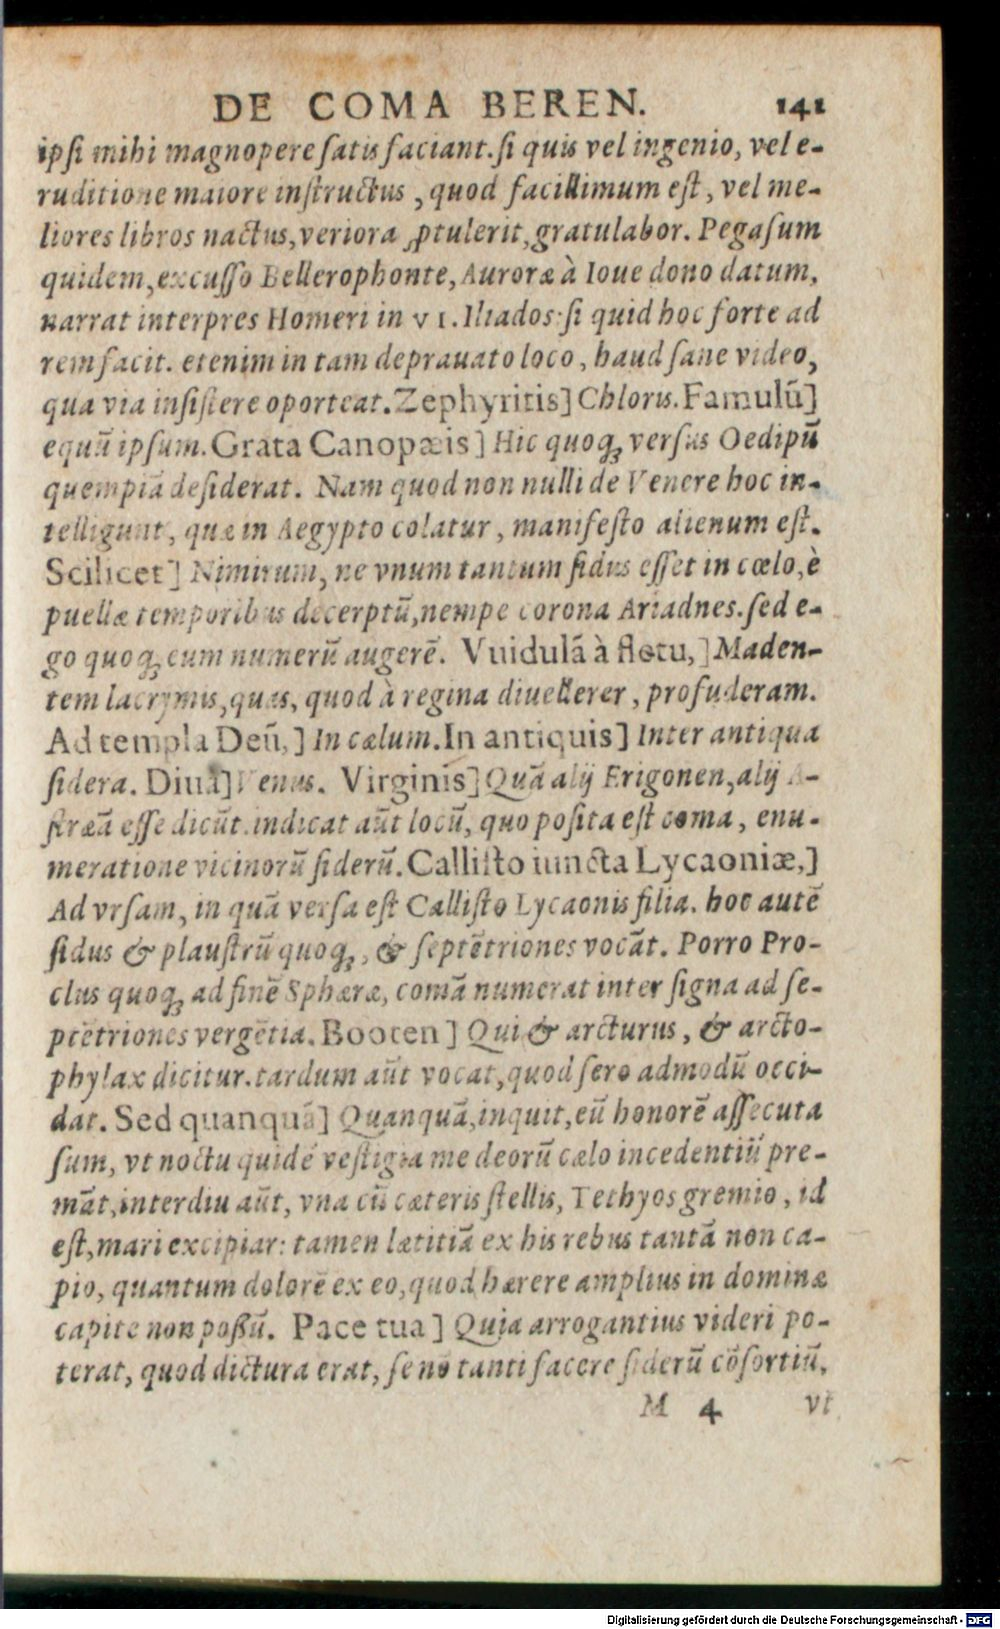 DE COMA BEREN. 141
ipſi mihi magnopere ſatis faciant. ſi quis vel ingenio, vel e-
ruditione maiore inſtructus, quod facillimum eſt, vel me-
liores libros nactus, veriora ꝓtulerit, gratulabor. Pegaſum
quidem, excuſſo Bellerophonte, Auroræ à Ioue dono datum,
narrat interpres Homeri in VI. Iliados: ſi quid hoc forte ad
rem facit. etenim in tam deprauato loco, haud ſane video,
qua via inſiſtere oporteat. Zephyritis] Chloris. Famulū]
equū ipſum. Grata Canopæis] Hic quoq; verſus Oedipū
quempiā deſiderat. Nam quod non nulli de Venere hoc in-
telligunt, quæ in Aegypto colatur, manifeſto alienum eſt.
Scilicet] Nimirum, ne vnum tantum ſidus eſſet in cœlo, è
puellæ temporibus decerptū, nempe corona Ariadnes. ſed e-
go quoq; eum numerū augerē. Vuidulā à fletu,] Maden-
tem lacrymis, quas, quod à regina diuellerer, profuderam.
Ad templa Deū,] In cælum. In antiquis] Inter antiqua
ſidera. Diua] Venus. Virginis] Quā alij Erigonen, alij A-
ſtræā eſſe dicūt. indicat aūt locū, quo poſita eſt coma, enu-
meratione vicinorū ſiderū. Calliſto iuncta Lycaoniæ,]
Ad vrſam, in quā verſa eſt Calliſto Lycaonis filia. hoc autē
ſidus & plauſtrū quoq;, & ſeptētriones vocāt. Porro Pro-
clus quoq; ad finē Sphæræ, comā numerat inter ſigna ad ſe-
ptētriones vergētia. Booten] Qui & arcturus, & arcto-
phylax dicitur. tardum aūt vocat, quod ſero admodū occi-
dat. Sed quanquā] Quanquā, inquit, eū honorē aſſecuta
ſum, vt noctu quidē veſtigia me deorū cælo incedentiū pre-
māt, interdiu aūt, vna cū cæteris ſtellis, Tethyos gremio, id
eſt, mari excipiar: tamen lætitiā ex his rebus tantā non ca-
pio, quantum dolorē ex eo, quod hærere amplius in dominæ
capite non poßū. Pace tua] Quia arrogantius videri po-
terat, quod dictura erat, ſe nō tanti facere ſiderū cōſortiū,
M 4 vt
Digitalisierung gefördert durch die Deutsche Forschungsgemeinschaft - DFG